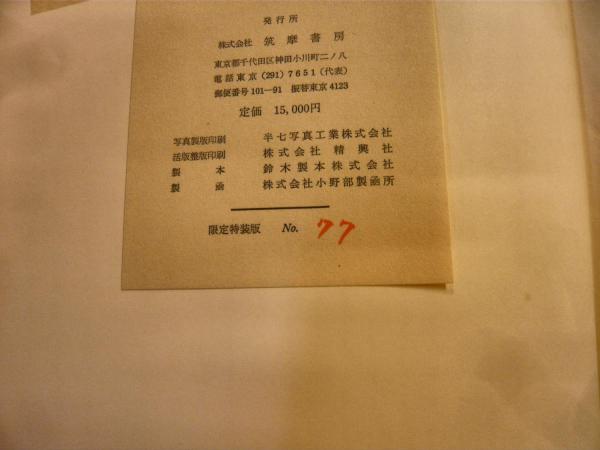 発行所
株式会社 筑摩書房
東京都千代田区神田小川町二ノ八
電話東京(291)7651(代表)
郵便番号101-91 振替東京4123
定価 15,000円
写真製版印刷 半七写真工業株式会社
活版整版印刷 株式会社 精興社
製本 鈴木製本株式会社
製函 株式会社小野部製函所
限定特装版 No. 77